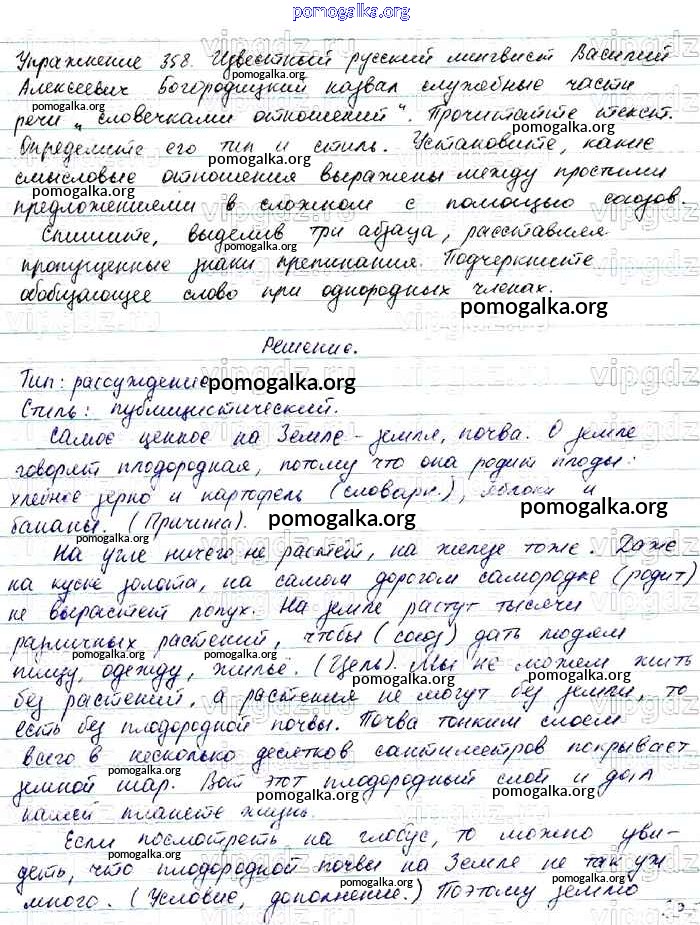 pomogalka.org
Упражнение 358. Известный русский лингвист Василий
Алексеевич Богородицкий назвал служебные части
речи „словечками отношений". Прочитайте текст.
Определите его тип и стиль. Установите, какие
смысловые отношения выражены между простыми
предложениями в сложном с помощью союзов.
Спишите, выделив три абзаца, расставляя
пропущенные знаки препинания. Подчеркните
обобщающее слово при однородных членах.
pomogalka.org
Решение.
Тип: рассуждение pomogalka.org
Стиль: публицистический.
Самое ценное на Земле - земля, почва. О земле
говорят плодородная, потому что она родит плоды:
хлебное зерно и картофель (словарн.), яблоки и
бананы. (Причина). pomogalka.org
На угле ничего не растёт, на железе тоже. Даже
на куске золота, на самом дорогом самородке (родит)
не вырастет лопух. На земле растут тысячи
различных растений, чтобы (союз) дать людям
пищу, одежду, жильё. (Цель). Мы не можем жить
без растений, а растения не могут без земли, то
есть без плодородной почвы. Почва тонким слоем
всего в несколько десятков сантиметров покрывает
земной шар. Вот этот плодородный слой и дал
нашей планете жизнь.
Если посмотреть на глобус, то можно уви-
деть, что плодородной почвы на Земле не так уж
много. (Условие, дополнение.) Поэтому землю